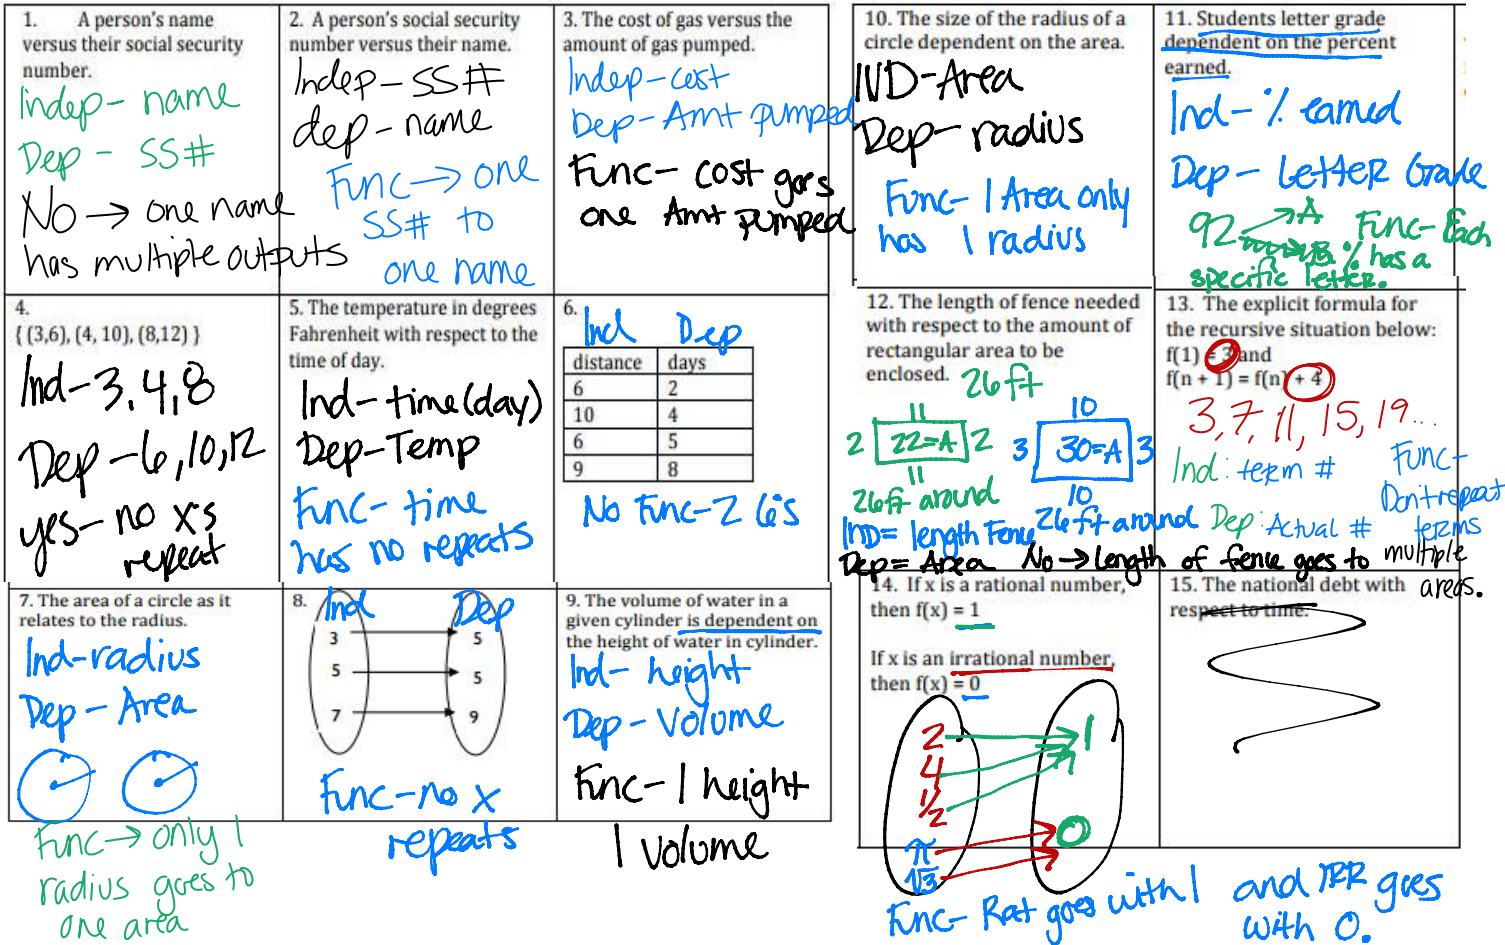 1. A person's name
versus their social security
number.
Indep- name
Dep - SS#
No → one name
has multiple outputs
2. A person's social security
number versus their name.
Indep- SS#
dep - name
Func → one
SS# to
one name
3. The cost of gas versus the
amount of gas pumped.
Indep - cost
Dep- Amt pumped
Func- cost goes
one Amt pumped
4.
{ (3,6), (4, 10), (8,12) }
Ind- 3, 4, 8
Dep - 6, 10, 12
yes- no x's
repeat
5. The temperature in degrees
Fahrenheit with respect to the
time of day.
Ind - time (day)
Dep- Temp
Func- time
has no repeats
6.
Ind Dep
distance days
6 2
10 4
6 5
9 8
No Func- 2 6's
7. The area of a circle as it
relates to the radius.
Ind-radius
Dep - Area
Func → only 1
radius goes to
one area
8.
Ind Dep
3 5
5 5
7 9
Func-no x
repeats
9. The volume of water in a
given cylinder is dependent on
the height of water in cylinder.
Ind- height
Dep - Volume
Func- 1 height
1 volume
10. The size of the radius of a
circle dependent on the area.
IND-Area
Dep- radius
Func- 1 Area only
has 1 radius
11. Students letter grade
dependent on the percent
earned.
Ind- % earned
Dep - Letter Grade
92 A
B
Func- Each
% has a
specific letter.
12. The length of fence needed
with respect to the amount of
rectangular area to be
enclosed.
26 ft
11 10
2 22=A 2 3 30=A 3
11 10
26ft around 26ft around
IND= length Fence
Dep= Area No → Length of fence goes to multiple
areas.
13. The explicit formula for
the recursive situation below:
f(1) = 3 and
f(n + 1) = f(n) + 4
3, 7, 11, 15, 19...
Ind: term #
Dep: Actual #
Func-
Don't repeat
terms
14. If x is a rational number,
then f(x) = 1
If x is an irrational number,
then f(x) = 0
2 1
4
1/2
π 0
√3
Func- Rat goes with 1 and IRR goes
with 0.
15. The national debt with
respect to time.